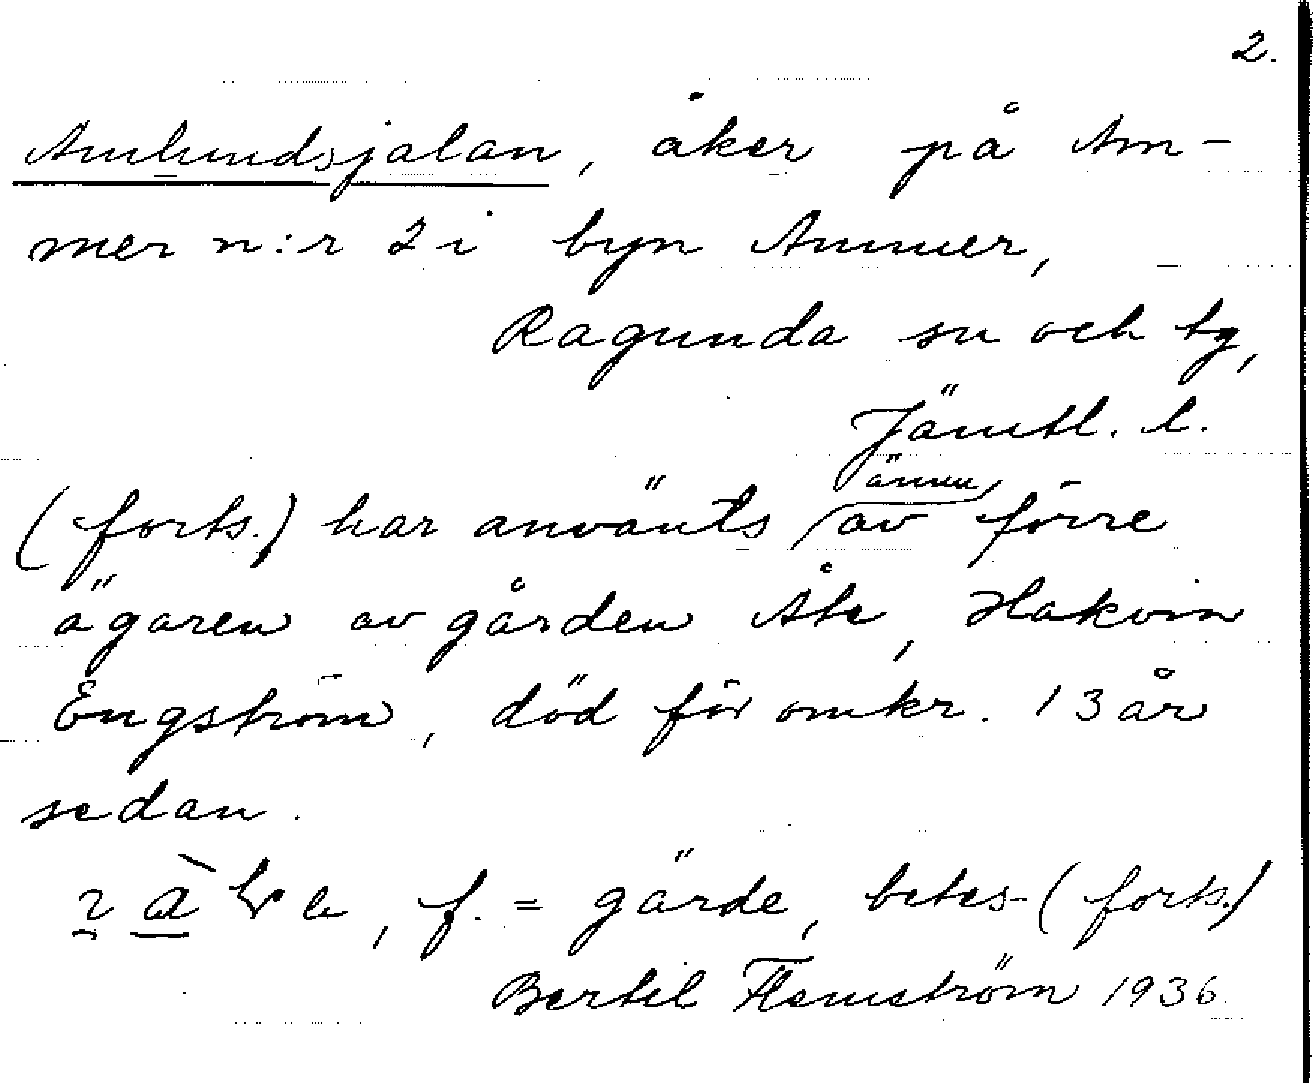 2.
Amlundsjalan, åker på Am-
mer n:r 2 i byn Ammer,
Ragunda sn och tg,
Jämtl. l.
ännu
(forts.) har använts av förre
ägaren av gården Åte, Hakvin
Engström, död för omkr. 13 år
sedan.
f. = gärde, betes- (forts.)
Bertil Flemström 1936.